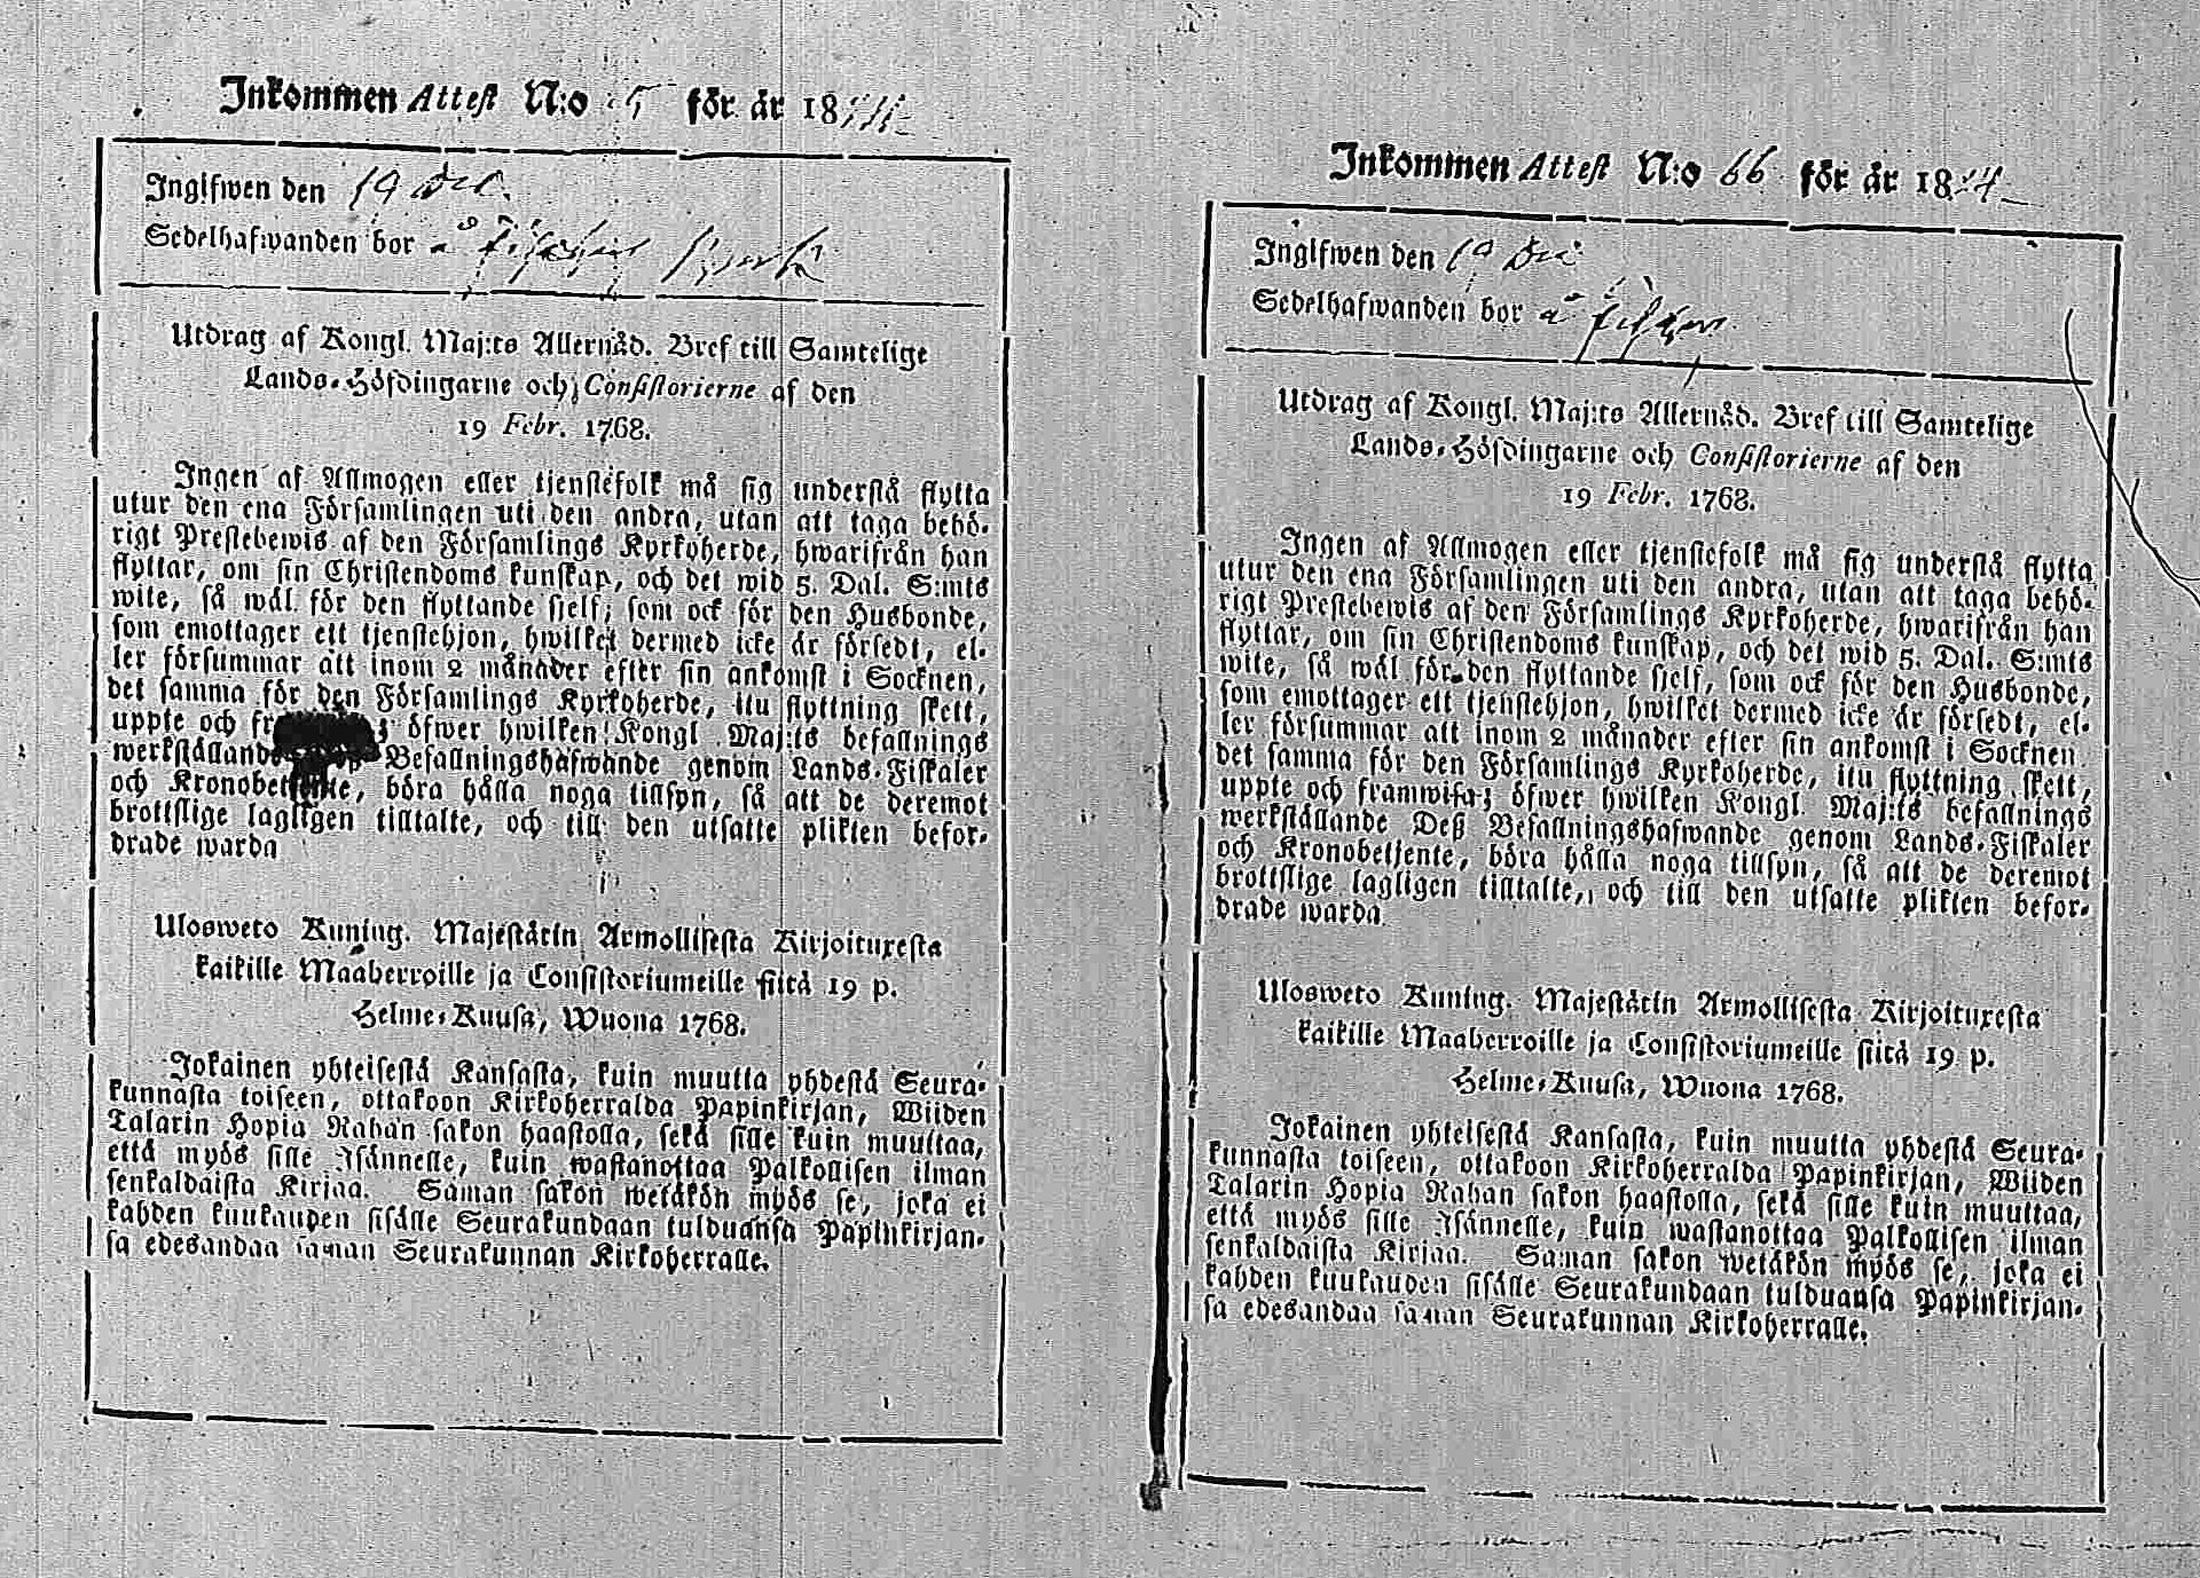 Inkommen Attest N:o för år 18
Ingifwen den 19 Dec.
Sedelhafwanden bor å
Utdrag af Kongl. Maj:ts Allernåd. Bref till Samtelige
Lands-Höfdingarne och Consistorierne af den
19 Febr. 1768.
Ingen af Allmogen eller tjenstefolk må sig understå flytta
utur den ena Församlingen uti den andra, utan att taga behö-
rigt Prestebewis af den Församlings Kyrkoherde, hwarifrån han
flyttar, om sin Christendoms kunskap, och det wid 5. Dal. S:mts
wite, så wäl för den flyttande sjelf, som ock för den Husbonde,
som emottager ett tjenstehjon, hwilket dermed icke är försedt, el-
ler försummar att inom 2 månader efter sin ankomst i Socknen,
det samma för den Församlings Kyrkoherde, itu flyttning skett,
uppte och öfwer hwilken Kongl. Maj:ts befallnings
werkställande Befallningshafwande genom Lands-Fiskaler
och Kronobetjente, böra hålla noga tillsyn, så att de deremot
brottslige lagligen tilltalte, och till den utsatte plikten befor-
drade warda
Ulosweto Kuning. Majestätin Armollisesta Kirjoituxesta
kaikille Maaherroille ja Consistoriumeille siitä 19 p.
Helme-Kuusa, Wuona 1768.
Jokainen yhteisestä Kansasta, kuin muutta yhdestä Seura-
kunnasta toiseen, ottakoon Kirkoherralda Papinkirjan, Wiiden
Talarin Hopia Rahan sakon haastolla, sekä sille kuin muuttaa,
että myös sille Isännelle, kuin wastanottaa Palkollisen ilman
senkaldaista Kirjaa. Saman sakon wetäkön myös se, joka ei
kahden kuukauden sisälle Seurakundaan tulduansa Papinkirjan-
sa edesandaa saman Seurakunnan Kirkoherralle.
Inkommen Attest N:o 66 för år 18
Ingifwen den 19 Dec
Sedelhafwanden bor å
Utdrag af Kongl. Maj:ts Allernåd. Bref till Samtelige
Lands-Höfdingarne och Consistorierne af den
19 Febr. 1768.
Ingen af Allmogen eller tjenstefolk må sig understå flytta
utur den ena Församlingen uti den andra, utan att taga behö-
rigt Prestebewis af den Församlings Kyrkoherde, hwarifrån han
flyttar, om sin Christendoms kunskap, och det wid 5. Dal. S:mts
wite, så wäl för den flyttande sjelf, som ock för den Husbonde,
som emottager ett tjenstehjon, hwilket dermed icke är försedt, el-
ler försummar att inom 2 månader efter sin ankomst i Socknen.
det samma för den Församlings Kyrkoherde, itu flyttning skett,
uppte och framwisa; öfwer hwilken Kongl. Maj:ts befallnings
werkställande Deß Befallningshafwande genom Lands-Fiskaler
och Kronobetjente, böra hålla noga tillsyn, så att de deremot
brottslige lagligen tilltalte, och till den utsatte plikten befor-
drade warda
Ulosweto Kuning. Majestätin Armollisesta Kirjoituxesta
kaikille Maaherroille ja Consistoriumeille siitä 19 p.
Helme-Kuusa, Wuona 1768.
Jokainen yhteisestä Kansasta, kuin muutta yhdestä Seura-
kunnasta toiseen, ottakoon Kirkoherralda Papinkirjan, Wiiden
Talarin Hopia Rahan sakon haastolla, sekä sille kuin muuttaa,
että myös sille Isännelle, kuin wastanottaa Palkollisen ilman
senkaldaista Kirjaa. Saman sakon wetäkön myös se, joka ei
kahden kuukauden sisälle Seurakundaan tulduansa Papinkirjan-
sa edesandaa saman Seurakunnan Kirkoherralle.